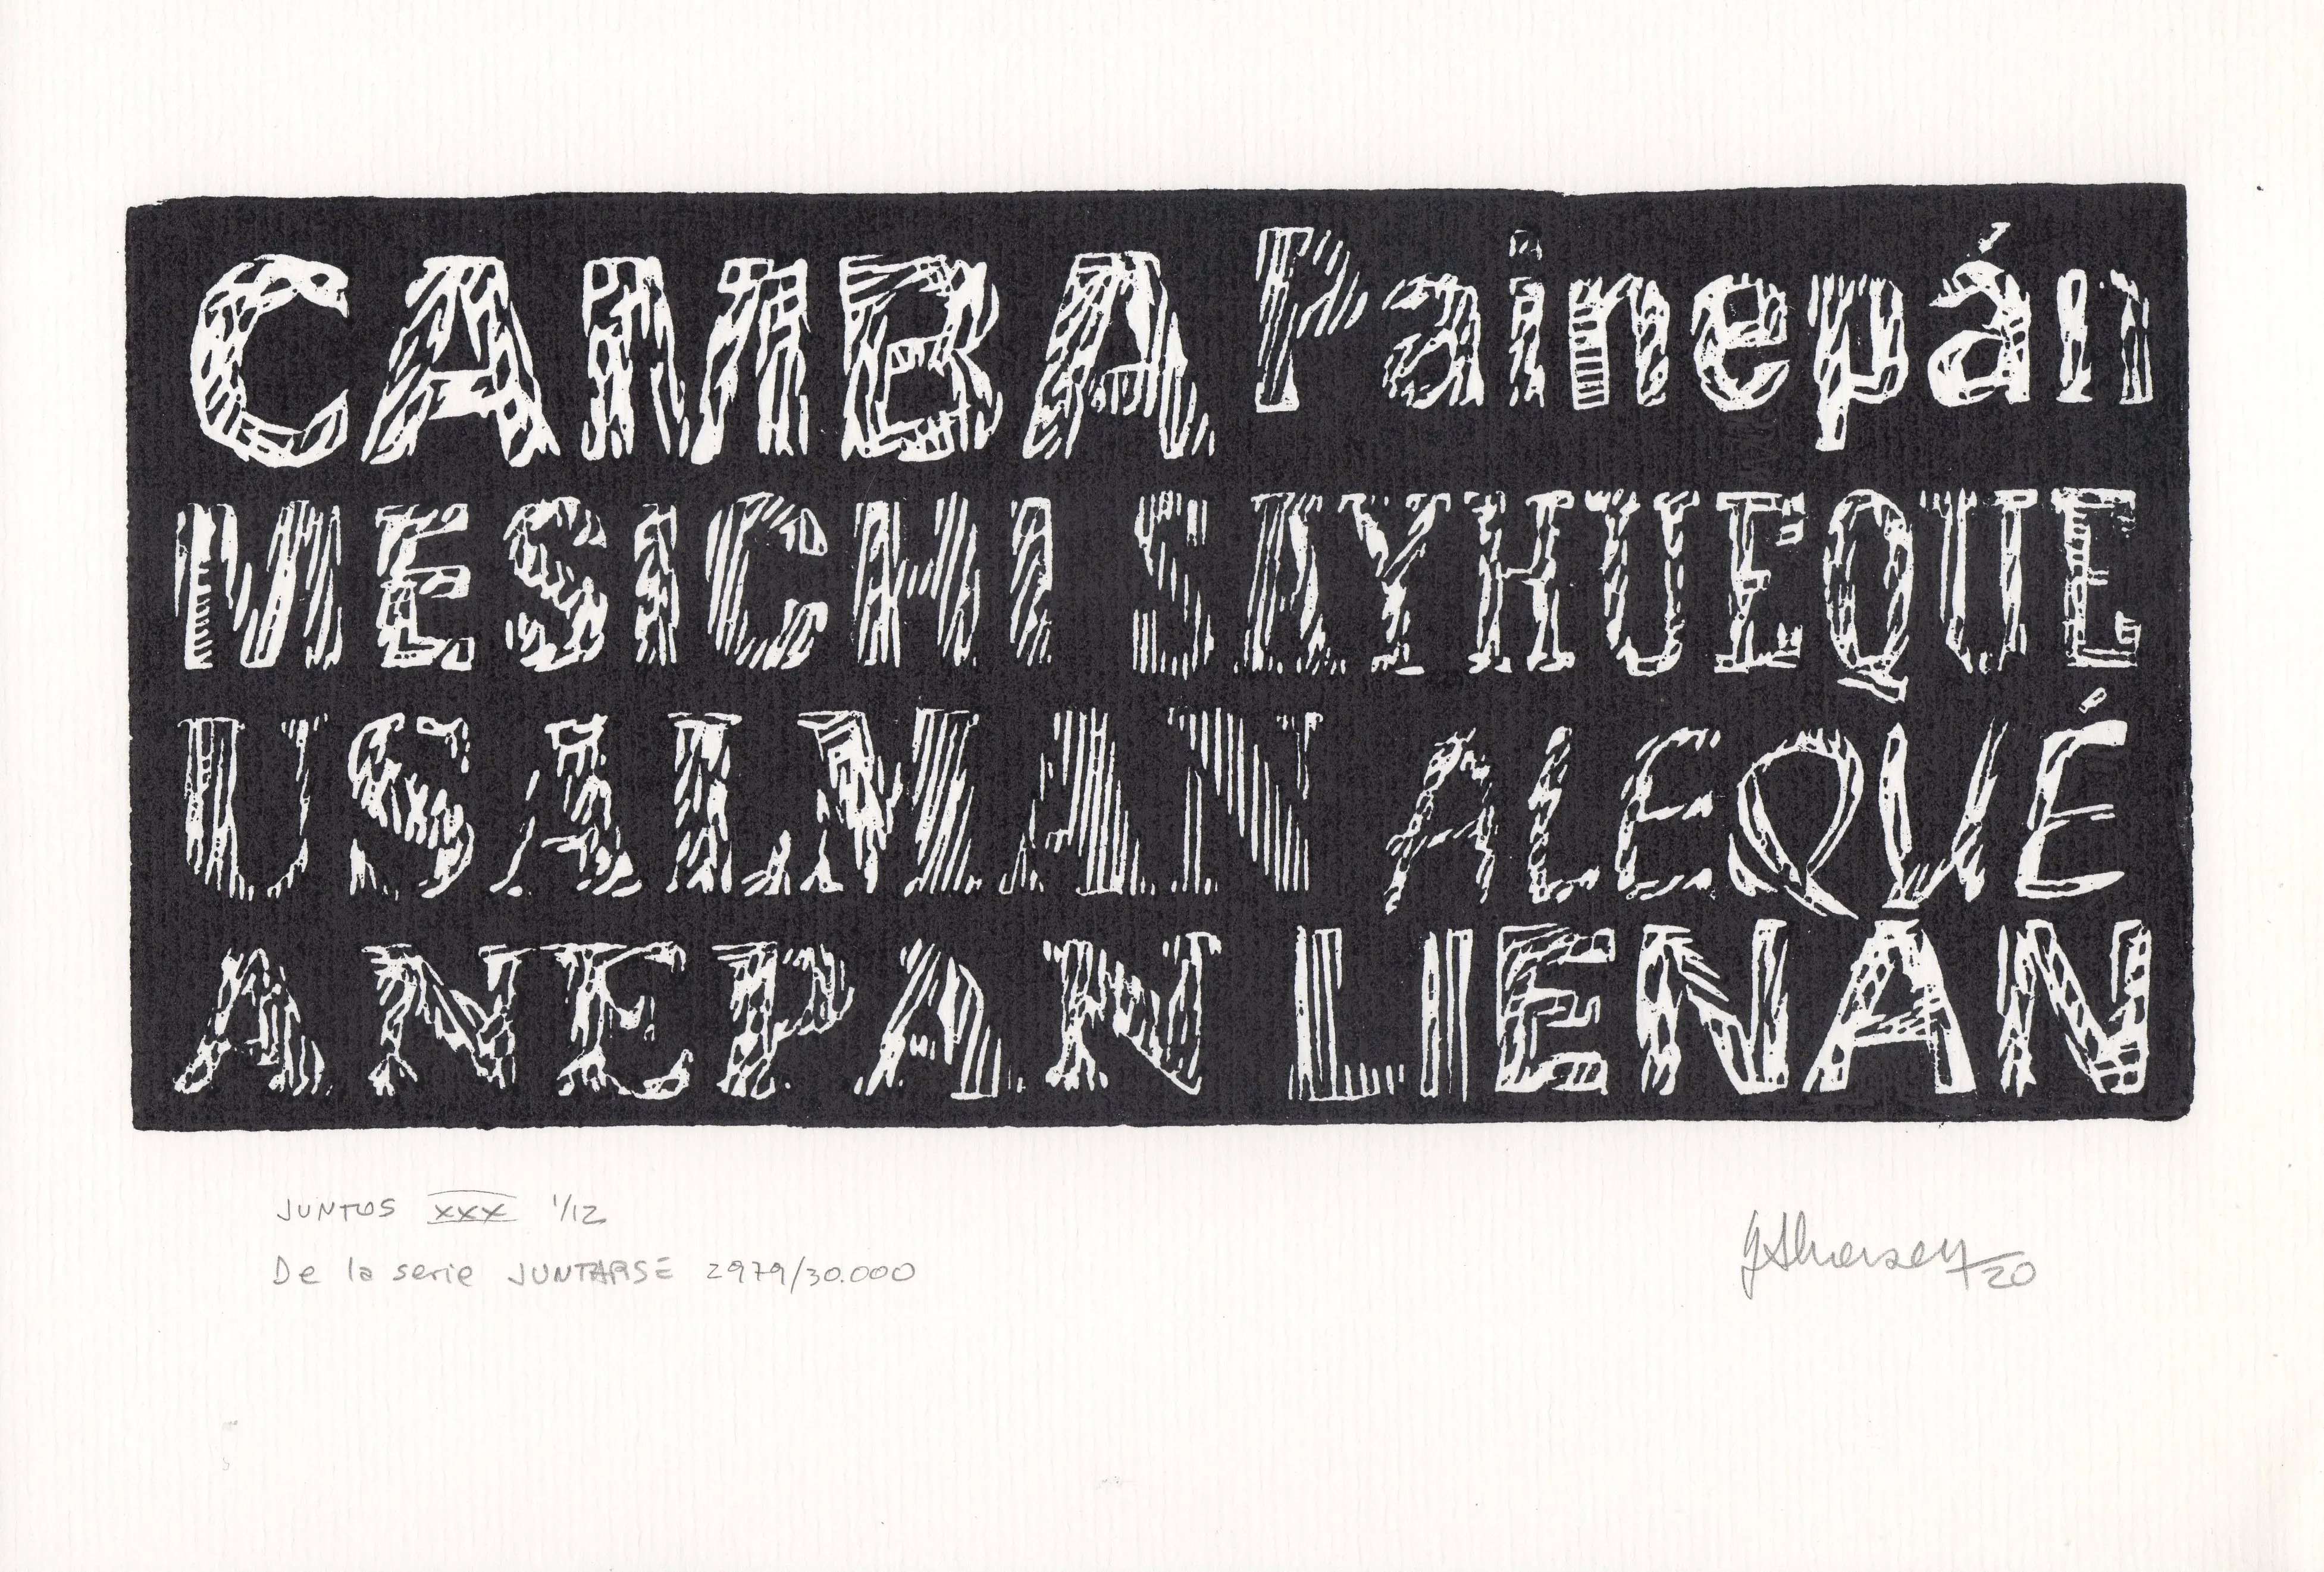 CAMBA Painepán
MESICHI SAYHUEQUE
USALMAN ALEQUÉ
ANEPAN LIENÁN
JUNTOS XXX 1/12
De la serie JUNTARSE 2979/30.000
20